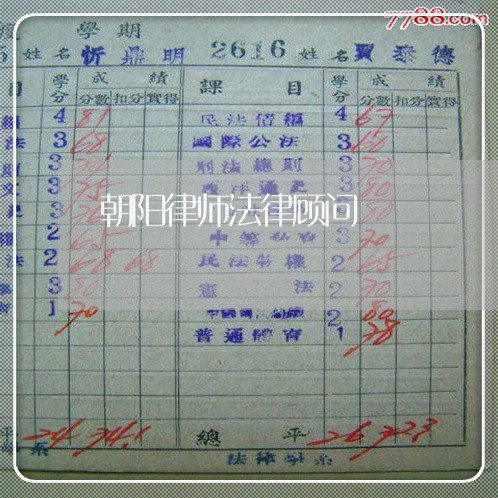 7788.com
學期
姓名 忻鼎明 2616 姓名 賈泰德
目 學分 成績 課目 學分 成績
分數 扣分 實得 分數 扣分 實得
4 81 民法債編 4 67
法 3 68 國際公法 3 60
3 刑法總則 3 70
3 75 西洋通史 3 80
3 3 80
朝阳律师法律顾问
2 65 3 70
法 2 68 68 民法物權 2 65
3 80 憲法 2 70
1 70 2 80
普通體育 1 78
平 24 74.1 總平 26 72.3
系 法律學系